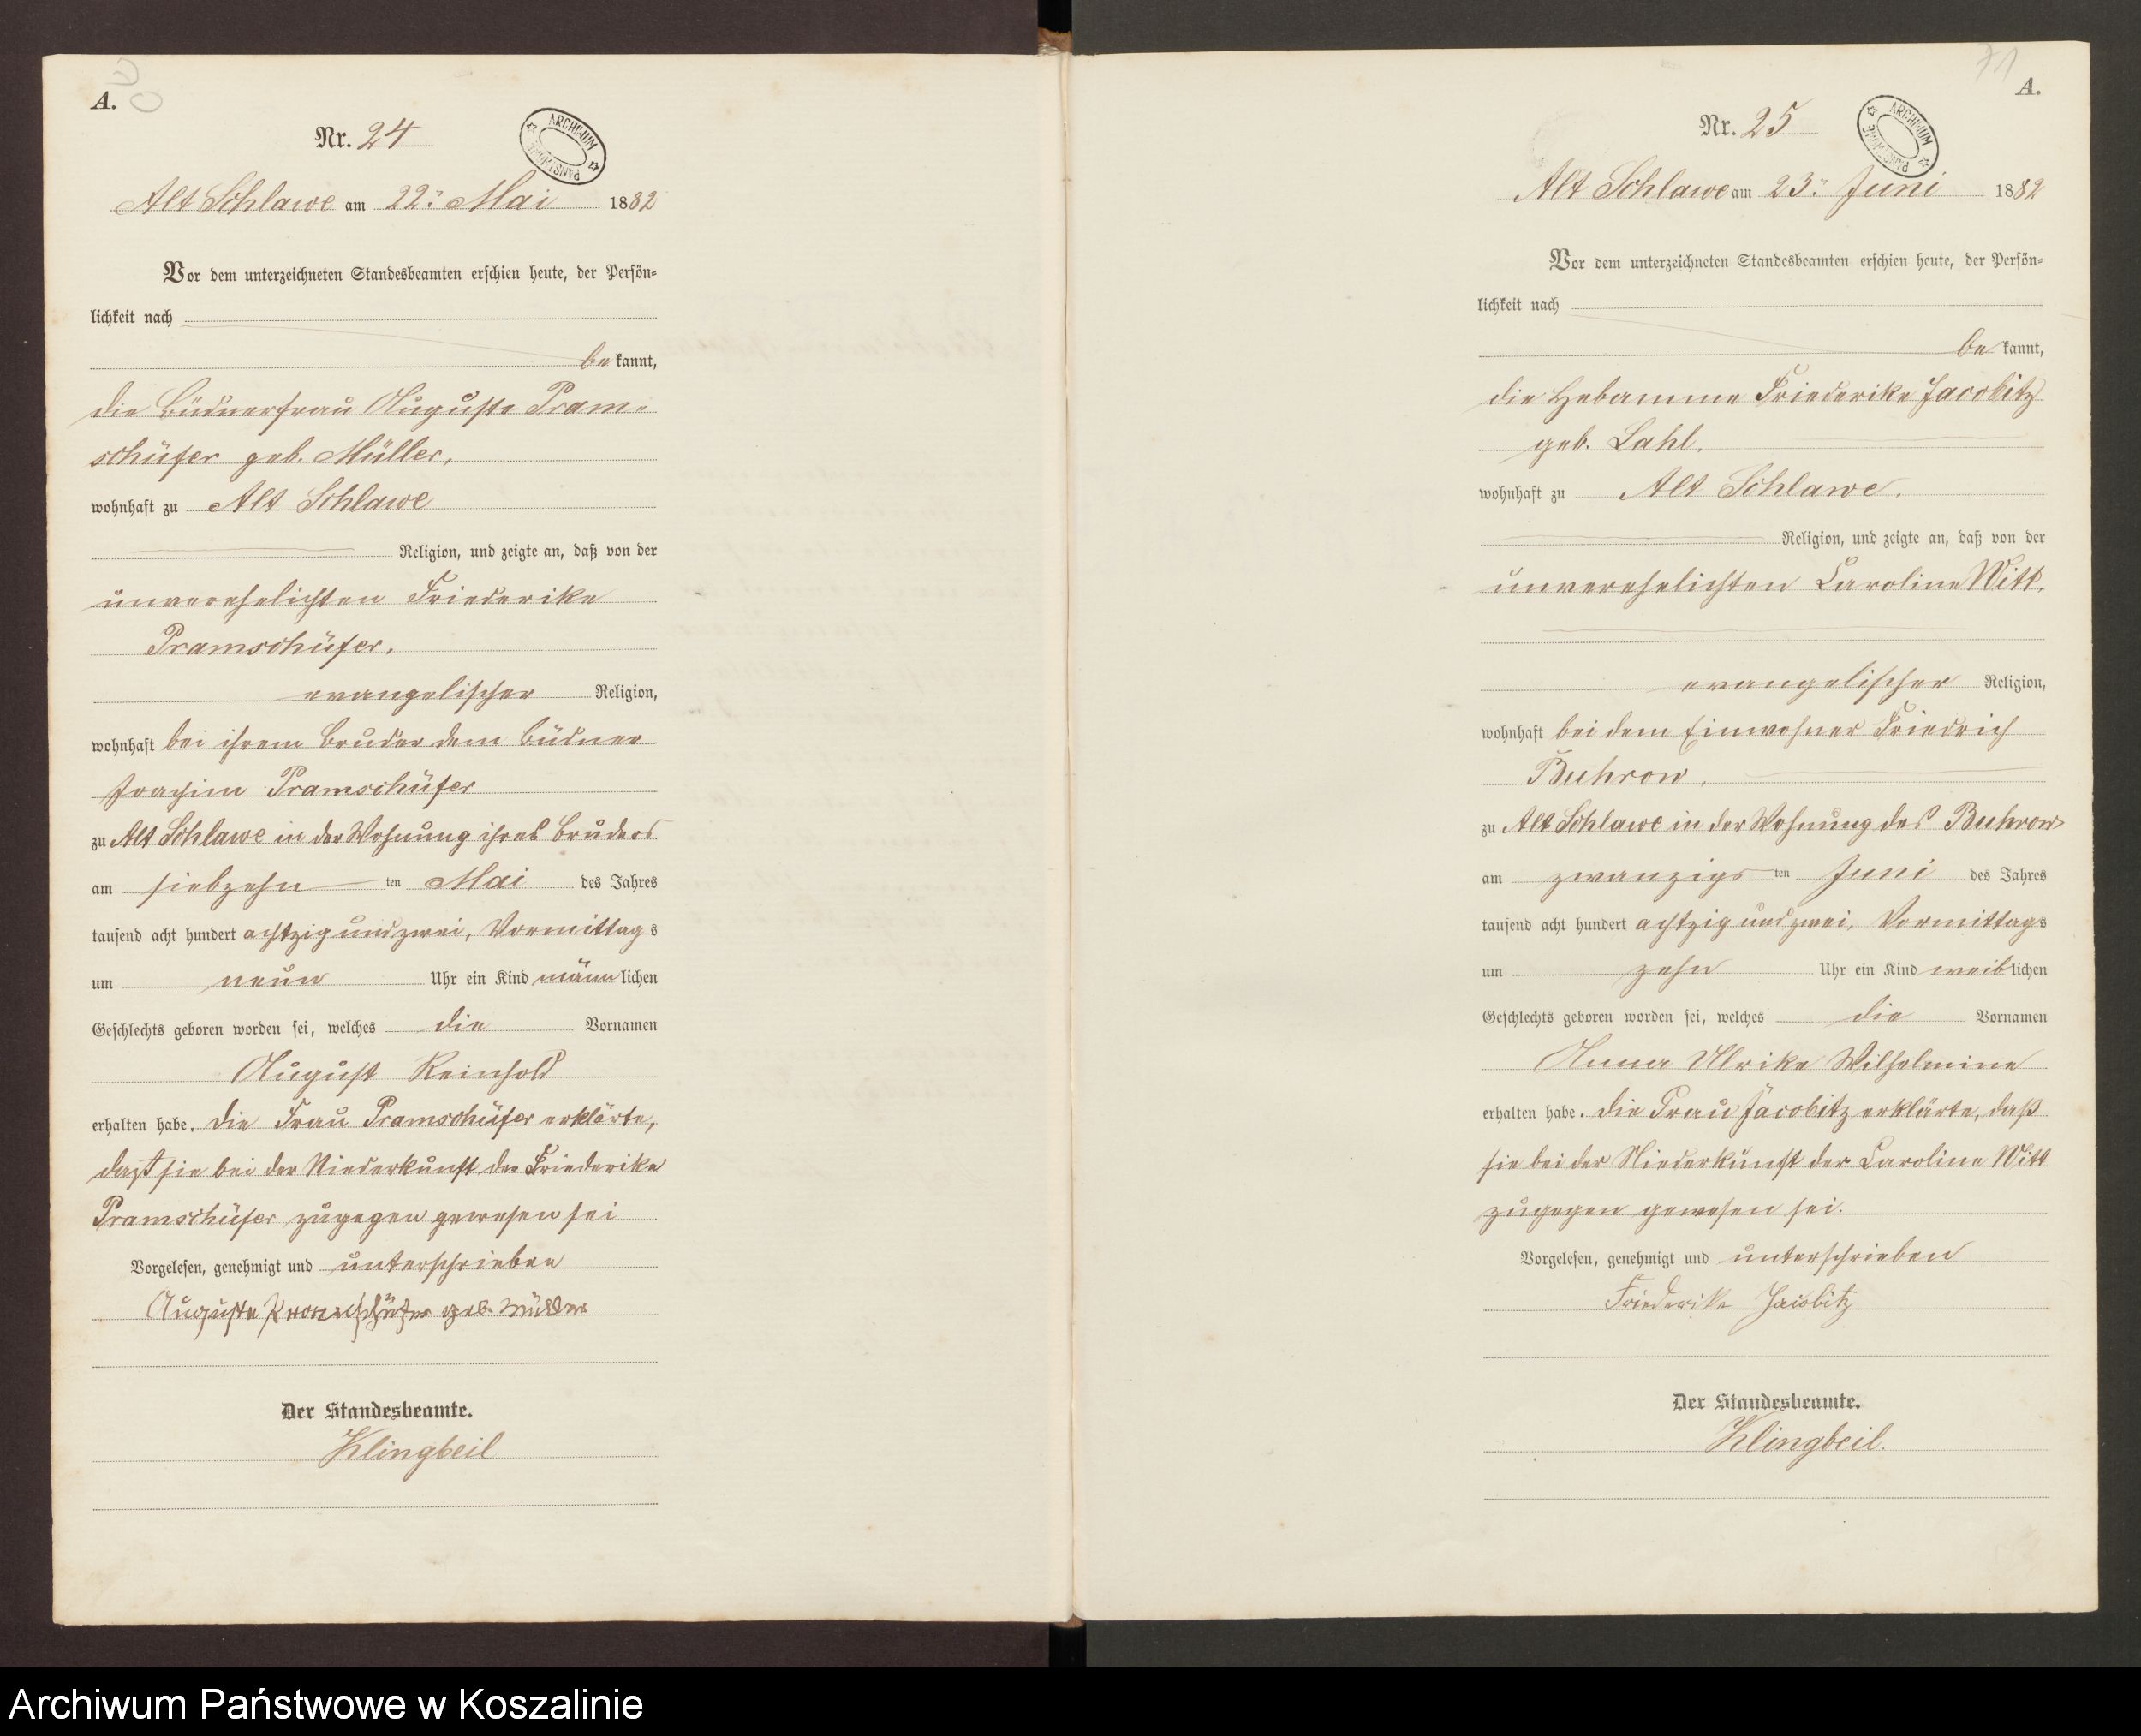 A.
Nr. 24
ARCHIWUM PAŃSTWOWE
Alt Schlawe am 22. Mai 1882
Vor dem unterzeichneten Standesbeamten erschien heute, der Persön-
lichkeit nach
be kannt,
die Büdnerfrau Auguste Pram-
schüfer geb. Müller,
wohnhaft zu Alt Schlawe
Religion, und zeigte an, daß von der
unverehelichten Friederike
Pramschüfer,
evangelischer Religion,
wohnhaft bei ihrem Bruder dem Büdner
Joachim Pramschüfer
zu Alt Schlawe in der Wohnung ihres Bruders
am siebzehn ten Mai des Jahres
tausend acht hundert achtzig und zwei, Vormittags
um neun Uhr ein Kind männlichen
Geschlechts geboren worden sei, welches die Vornamen
August Reinhold
erhalten habe. Die Frau Pramschüfer erklärte,
daß sie bei der Niederkunft der Friederike
Pramschüfer zugegen gewesen sei
Vorgelesen, genehmigt und unterschrieben
Auguste Pramschüfer geb. Müller
Der Standesbeamte.
Klingbeil
71
A.
Nr. 25
ARCHIWUM PAŃSTWOWE
Alt Schlawe am 23. Juni 1882
Vor dem unterzeichneten Standesbeamten erschien heute, der Persön-
lichkeit nach
be kannt,
die Hebamme Friederike Jacobitz
geb. Lahl.
wohnhaft zu Alt Schlawe.
Religion, und zeigte an, daß von der
unverehelichten Caroline Witt.
evangelischer Religion,
wohnhaft bei dem Einwohner Friedrich
Buhrow,
zu Alt Schlawe in der Wohnung des Buhrow
am zwanzigs ten Juni des Jahres
tausend acht hundert achtzig und zwei, Vormittags
um zehn Uhr ein Kind weiblichen
Geschlechts geboren worden sei, welches die Vornamen
Anna Ulrike Wilhelmine
erhalten habe. Die Frau Jacobitz erklärte, daß
sie bei der Niederkunft der Caroline Witt
zugegen gewesen sei.
Vorgelesen, genehmigt und unterschrieben
Friederike Jacobitz
Der Standesbeamte.
Klingbeil.
Archiwum Państwowe w Koszalinie